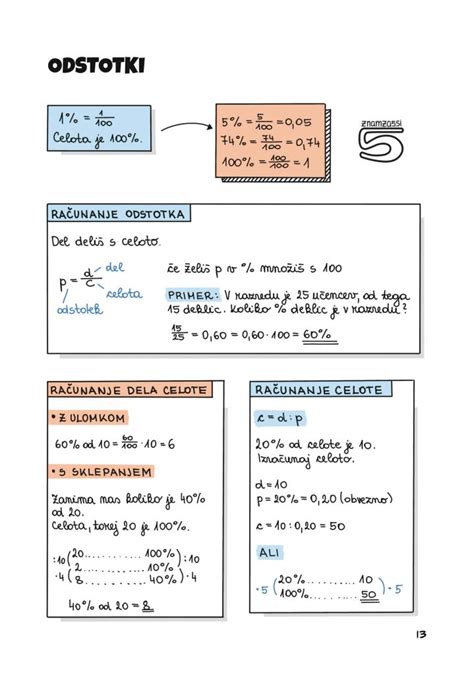 ODSTOTKI
1% = 1/100
Celota je 100%.
5% = 5/100 = 0,05
74% = 74/100 = 0,74
100% = 100/100 = 1
znamza5si
5
RAČUNANJE ODSTOTKA
Del deliš s celoto.
p = d/c
del
celota
odstotek
če želiš p v % množiš s 100
PRIMER: V razredu je 25 učencev, od tega
15 deklic. Koliko % deklic je v razredu?
15/25 = 0,60 = 0,60 · 100 = 60%
RAČUNANJE DELA CELOTE
• Z ULOMKOM
60% od 10 = 60/100 · 10 = 6
• S SKLEPANJEM
Zanima nas koliko je 40%
od 20.
Celota, torej 20 je 100%.
:10 ( 20 .......... 100% ) :10
2 .......... 10%
·4 ( 8 .......... 40% ) ·4
40% od 20 = 8
RAČUNANJE CELOTE
c = d : p
20% od celote je 10.
Izračunaj celoto.
d = 10
p = 20% = 0,20 (obvezno)
c = 10 : 0,20 = 50
ALI
·5 ( 20% .......... 10 ) ·5
100% .......... 50
13